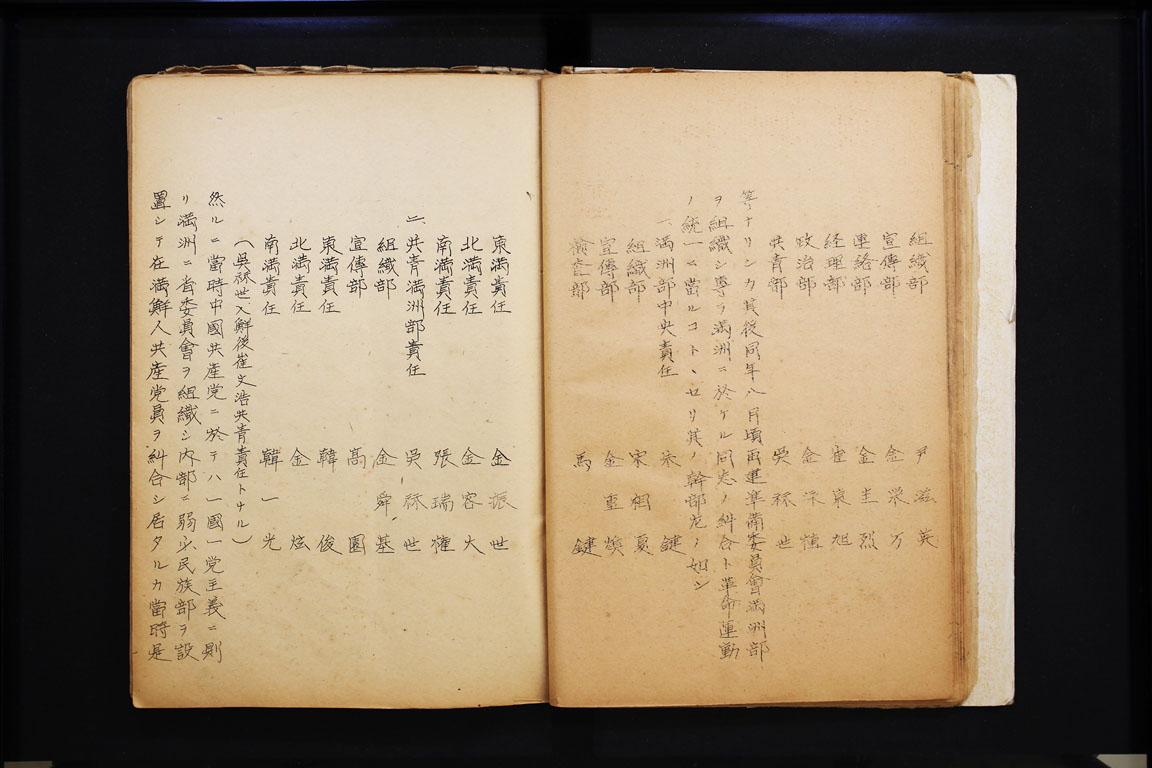 組織部 尹滋英
宣傳部 金榮万
連絡部 金圭烈
経理部 崔東旭
政治部 金榮
共青部 吳秝世
等ナリシカ其後同年八月頃再建準備委員會満洲部
ヲ組織シ專ラ満洲ニ於ケル同志ノ糾合ト革命運動
ノ統一ニ當ルコトヽセリ其ノ幹部左ノ如シ
一、満洲部中央責任 朱鍵
組織部 宋相夏
宣傳部 金重
檢査部 馬鍵
東満責任 金振世
北満責任 金容大
南満責任 張瑞
二、共青満洲部責任 吳秝世
組織部 金舜基
宣傳部 高園
東満責任 韓俊
北満責任 金炫
南満責任 韓一光
(吳秝世入鮮後崔文浩共青責任トナル)
然ルニ當時中國共産党ニ於テハ一國一党主義ニ則
リ満洲ニ省委員會ヲ組織シ内部ニ弱少民族部ヲ設
置シテ在満鮮人共産党員ヲ糾合シ居タルカ當時是